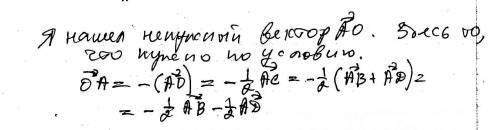 Я нашел ненужный вектор A⃗O. Здесь то,
что нужно по условию.
O⃗A = -(A⃗O) = -½ A⃗C = -½ (A⃗B + A⃗D) =
= -½ A⃗B - ½ A⃗D